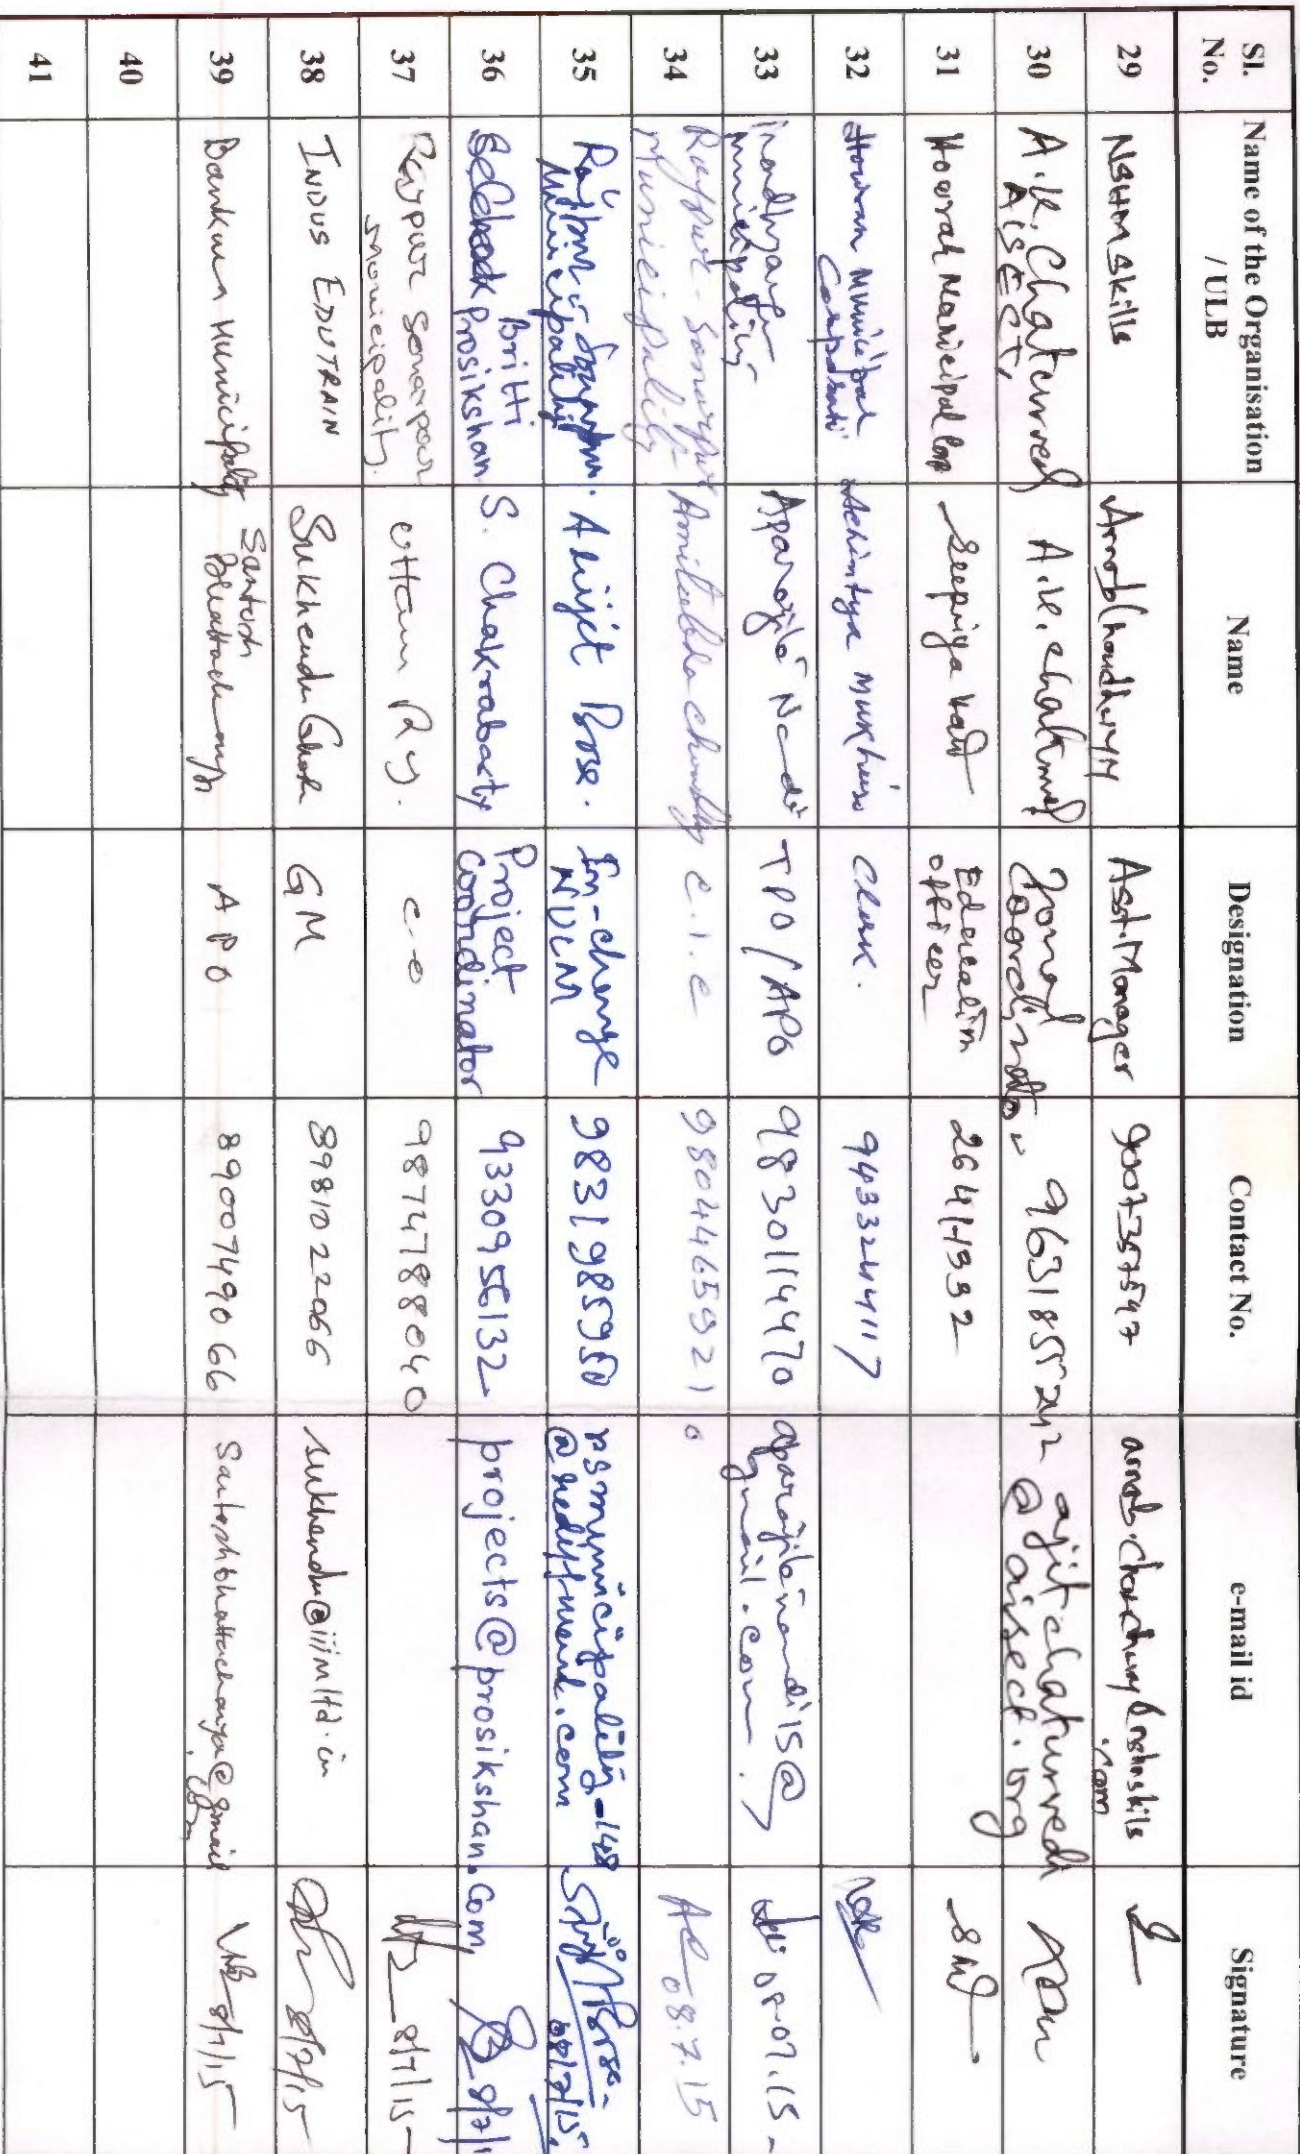 Sl. No. Name of the Organisation / ULB Name Designation Contact No. e-mail id Signature
29 NSHM Skills Arnab Choudhury Asst. Manager 9007357547 .com
30 A.K. Chaturvedi AISECT, A.K. Chaturvedi Zonal Coordinator 9631855242 ajitchaturvedi @ aisect.org
31 Howrah Municipal Corp Education Officer 2641-1392
32 Howrah Municipal Corporation Achintya Mukherjee Clerk. 9433244117
33 Municipality Aparajita Nandi TPO / APO 9830114470 aparajitanandi15@ gmail.com. 08.07.15
34 Rajpur-Sonarpur Municipality Amitabha Chowdhury C.I.C 9804465921 08.7.15
35 Rajpur-Sonarpur Municipality Abhijit Bose. In-charge NULM 9831985950 rsmunicipality-148 @rediffmail.com 08/7/15.
36 Britti Prosikshan S. Chakrabarty Project Coordinator 9330956132 projects@prosikshan.com 8/7/1
37 Rajpur Sonarpur Municipality. Uttam Ry. C-O 9874788040 8/7/15
38 INDUS EDUTRAIN Sukhendu Ghosh GM 8981022066 sukhendu@iiimltd.in 8/7/15
39 Bankura Municipality Santosh Bhattacharya APO 8900749066 Santoshbhattacharya@gmail.com 8/7/15
40
41